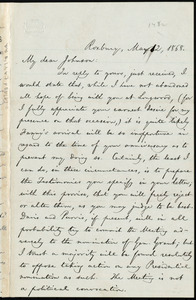 Roxbury, May 12, 1868.
My dear Johnson:
In reply to yours, just received, I
would state that, while I have not abandoned
all hope of being with you at Longwood, (for
I fully appreciate your earnest desire for my
presence on that occasion,) it is quite likely
Fanny's arrival will be so inopportune in
regard to the time of your anniversary as to
prevent my doing so. Certainly, the least I
can do, in these circumstances, is to prepare
the Testimonies you specify in your letter,
with this proviso, that you will freely reject
or alter them, as you may judge to be best.
Davis and Purvis, if present, will in all
probability try to commit the Meeting ad-
versely to the nomination of Gen. Grant; but
I trust a majority will be found resolutely
to oppose taking action on any Presidential
nomination as such. The Meeting is not
a political convocation.